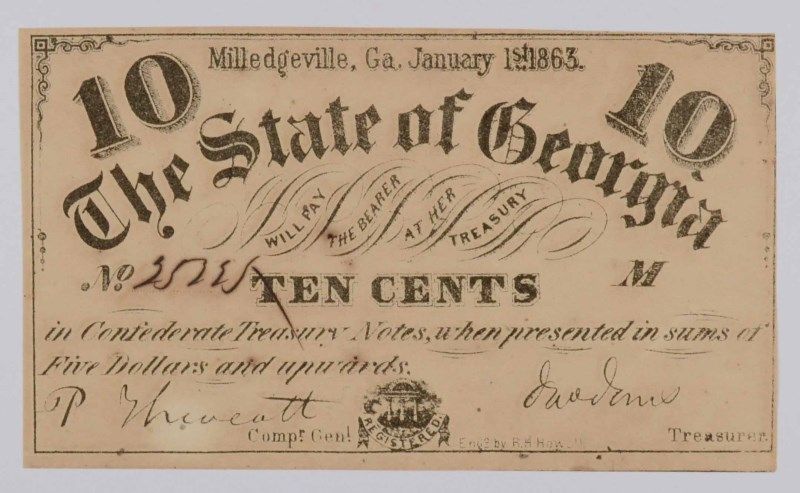 Milledgeville, Ga. January 1st 1863.
10 10
The State of Georgia
WILL PAY THE BEARER AT HER TREASURY
No. TEN CENTS M
in Confederate Treasury Notes, when presented in sums of
Five Dollars and upwards.
P Thweatt
Compr. Genl. REGISTERED Engd by R.H. Howell Treasurer.